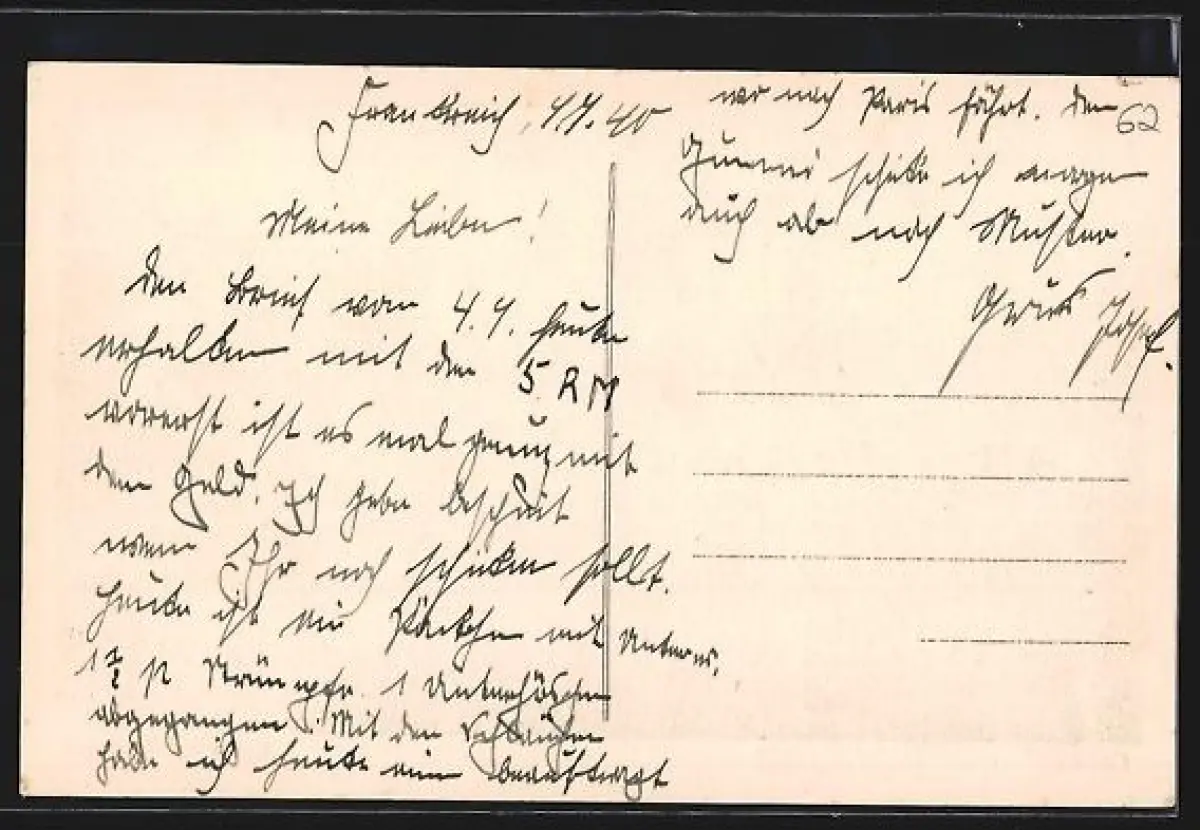 Frankreich, 4.7.40
Meine Lieben!
Den Brief vom 4.7. heute
erhalten mit den 5 RM
vorerst ist es mal genug mit
dem Geld. Ich gebe bescheit
wenn Ihr noch schicken sollt.
Heute ist ein Päckchen mit
1 1/2 P Strümpfe 1 Unterhöschen
abgegangen. Mit den
habe ich heute einen beauftragt
wo nach Paris fährt. Den
Gummi schicke ich morgen
auch ab nach Muster.
Gruss Josef.
62